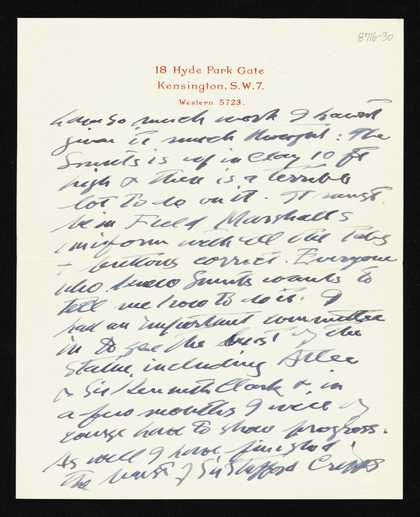 8716-30
18 Hyde Park Gate
Kensington, S.W.7.
Western 5723.
have so much work I havent
given it much thought: The
Smuts is up in clay 10 ft
high & there is a terrible
lot to do on it. It must
be in Field Marshall's
Uniform with all the tabs
+ buttons correct. Everyone
who knew Smuts wants to
tell me how to do it. I
had an important committee
in to see the bust of the
Statue including Atlee
& Sir Kenneth Clark & in
a few months I will of
course have to show progress.
As well I have finished
the bust of Sir Stafford Cripps